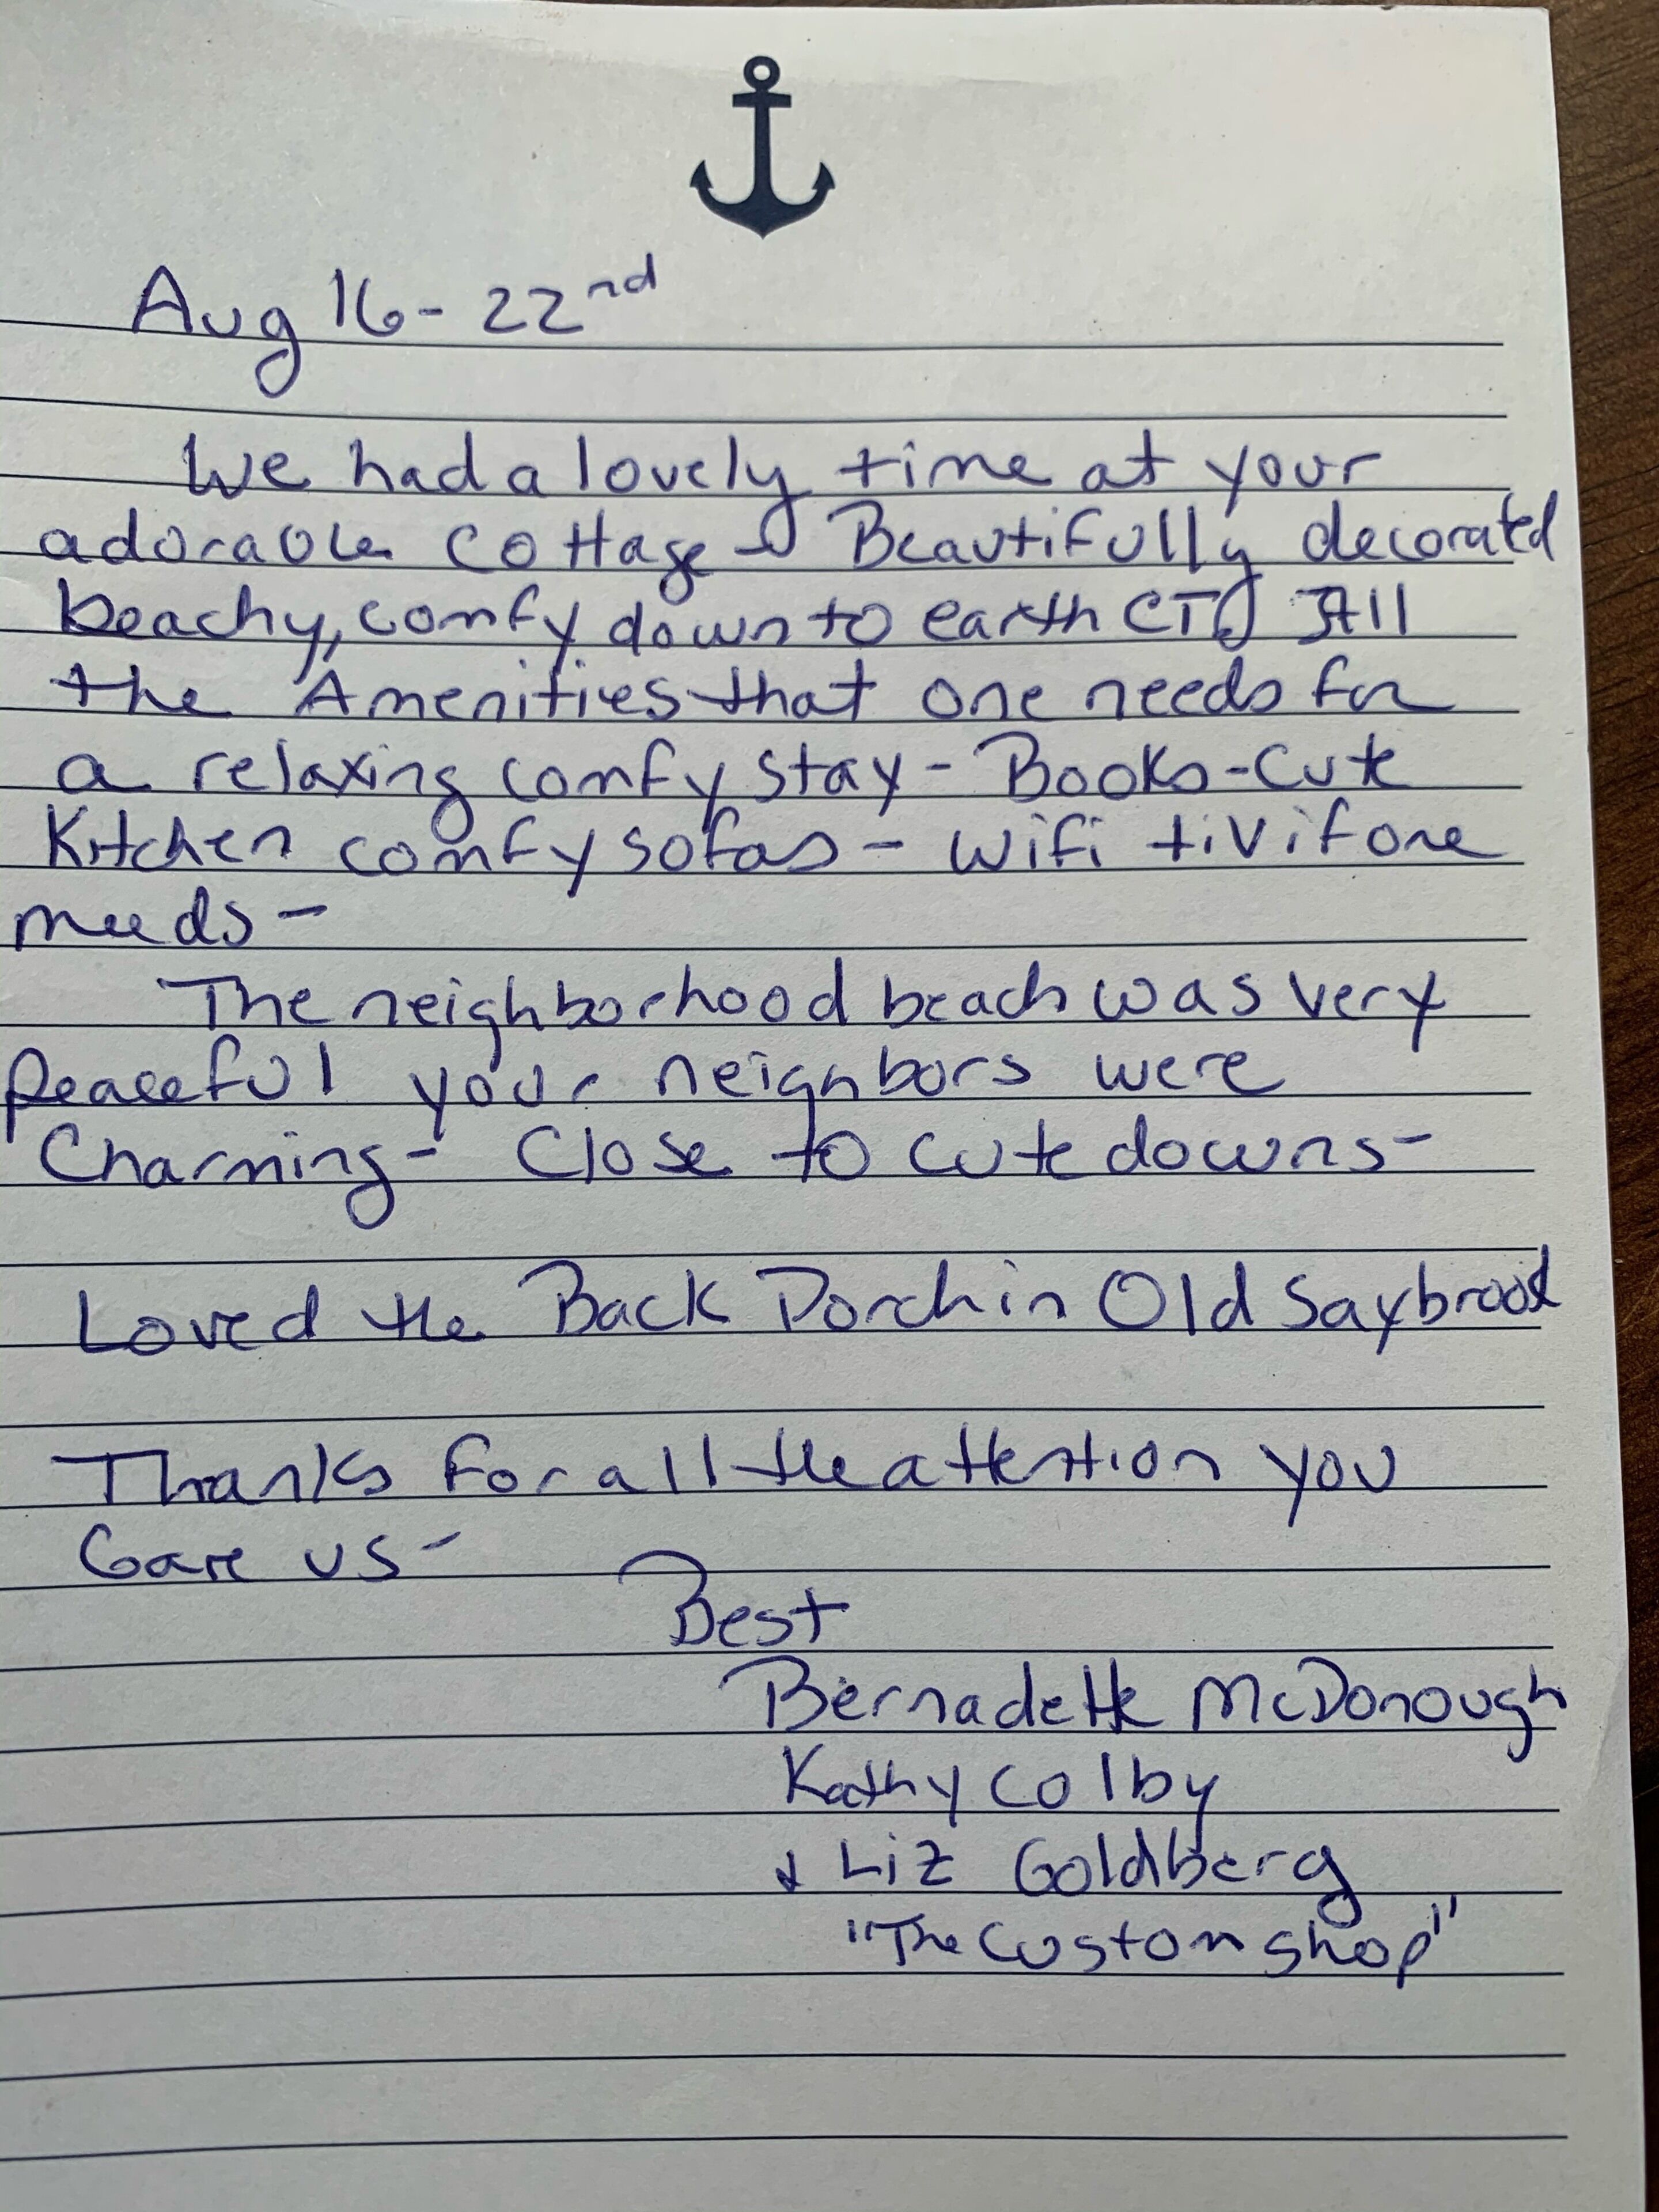 Aug 16 - 22nd
We had a lovely time at your
adorable cottage - Beautifully decorated
beachy, comfy down to earth CT All
the Amenities that one needs for
a relaxing comfy stay - Books - Cute
Kitchen comfy sofas - wifi tivi if one
needs -
The neighborhood beach was very
peaceful your neighbors were
Charming - Close to cute downs -
Loved the Back Porch in Old Saybrook
Thanks for all the attention you
Gave us -
Best
Bernadette McDonough
Kathy Colby
& Liz Goldberg
"The Custom Shop"